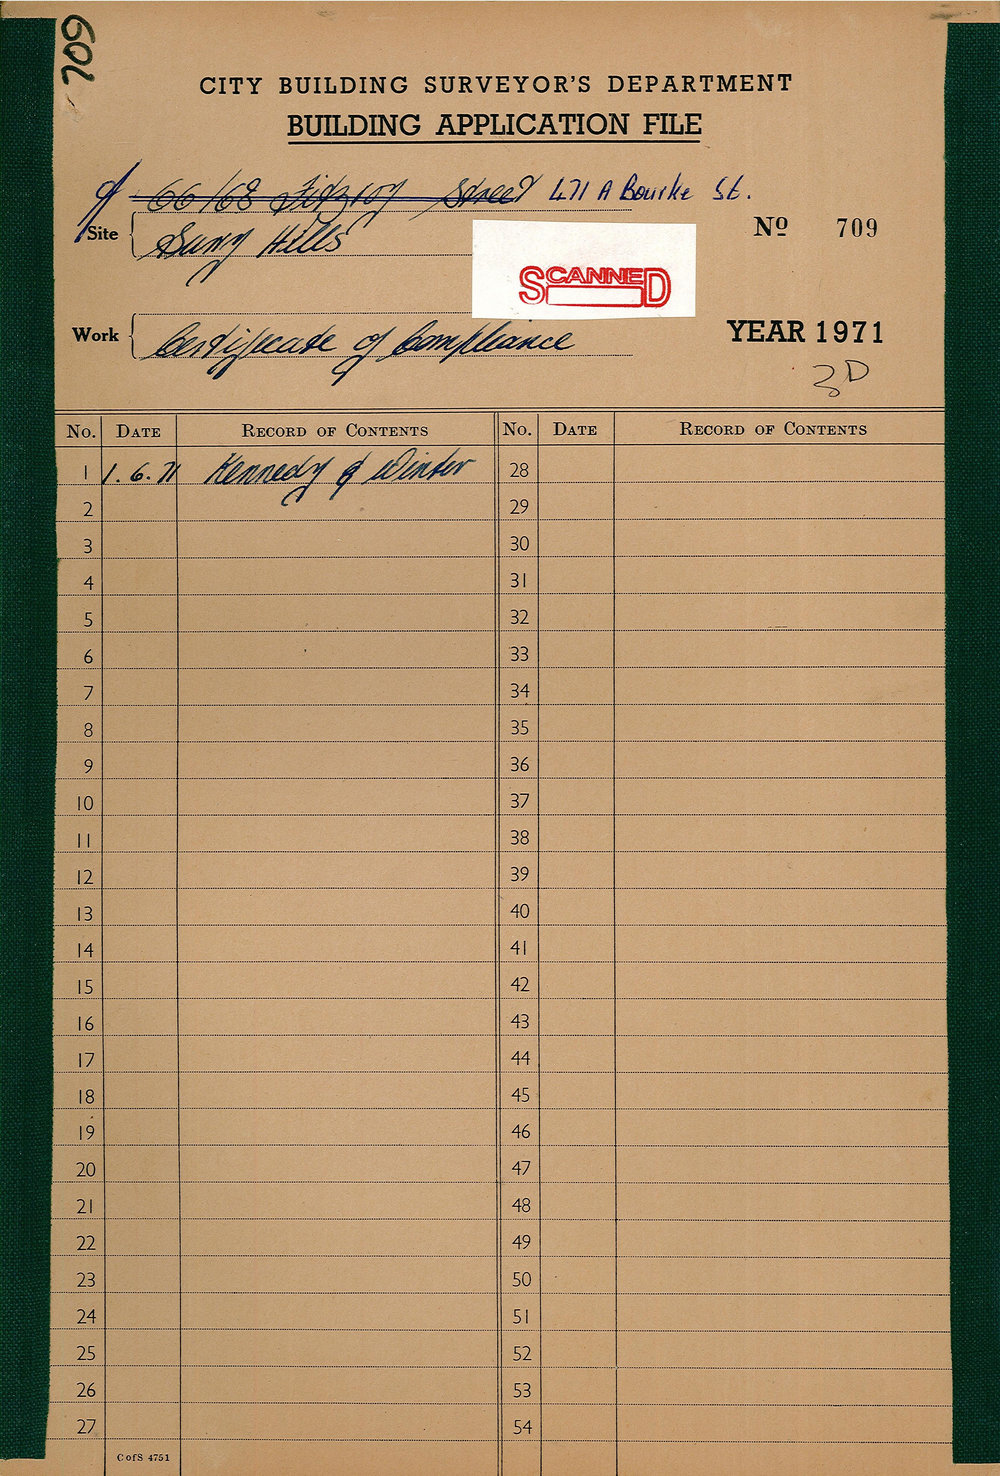 709
CITY BUILDING SURVEYOR'S DEPARTMENT
BUILDING APPLICATION FILE
66/68 Fitzroy Street 471A Bourke St.
Site Surry Hills
No 709
SCANNED
Work Certificate of Compliance
YEAR 1971
3D
No. DATE RECORD OF CONTENTS No. DATE RECORD OF CONTENTS
1 1.6.71 Kennedy & Winter 28
2 29
3 30
4 31
5 32
6 33
7 34
8 35
9 36
10 37
11 38
12 39
13 40
14 41
15 42
16 43
17 44
18 45
19 46
20 47
21 48
22 49
23 50
24 51
25 52
26 53
27 54
C of S 4751